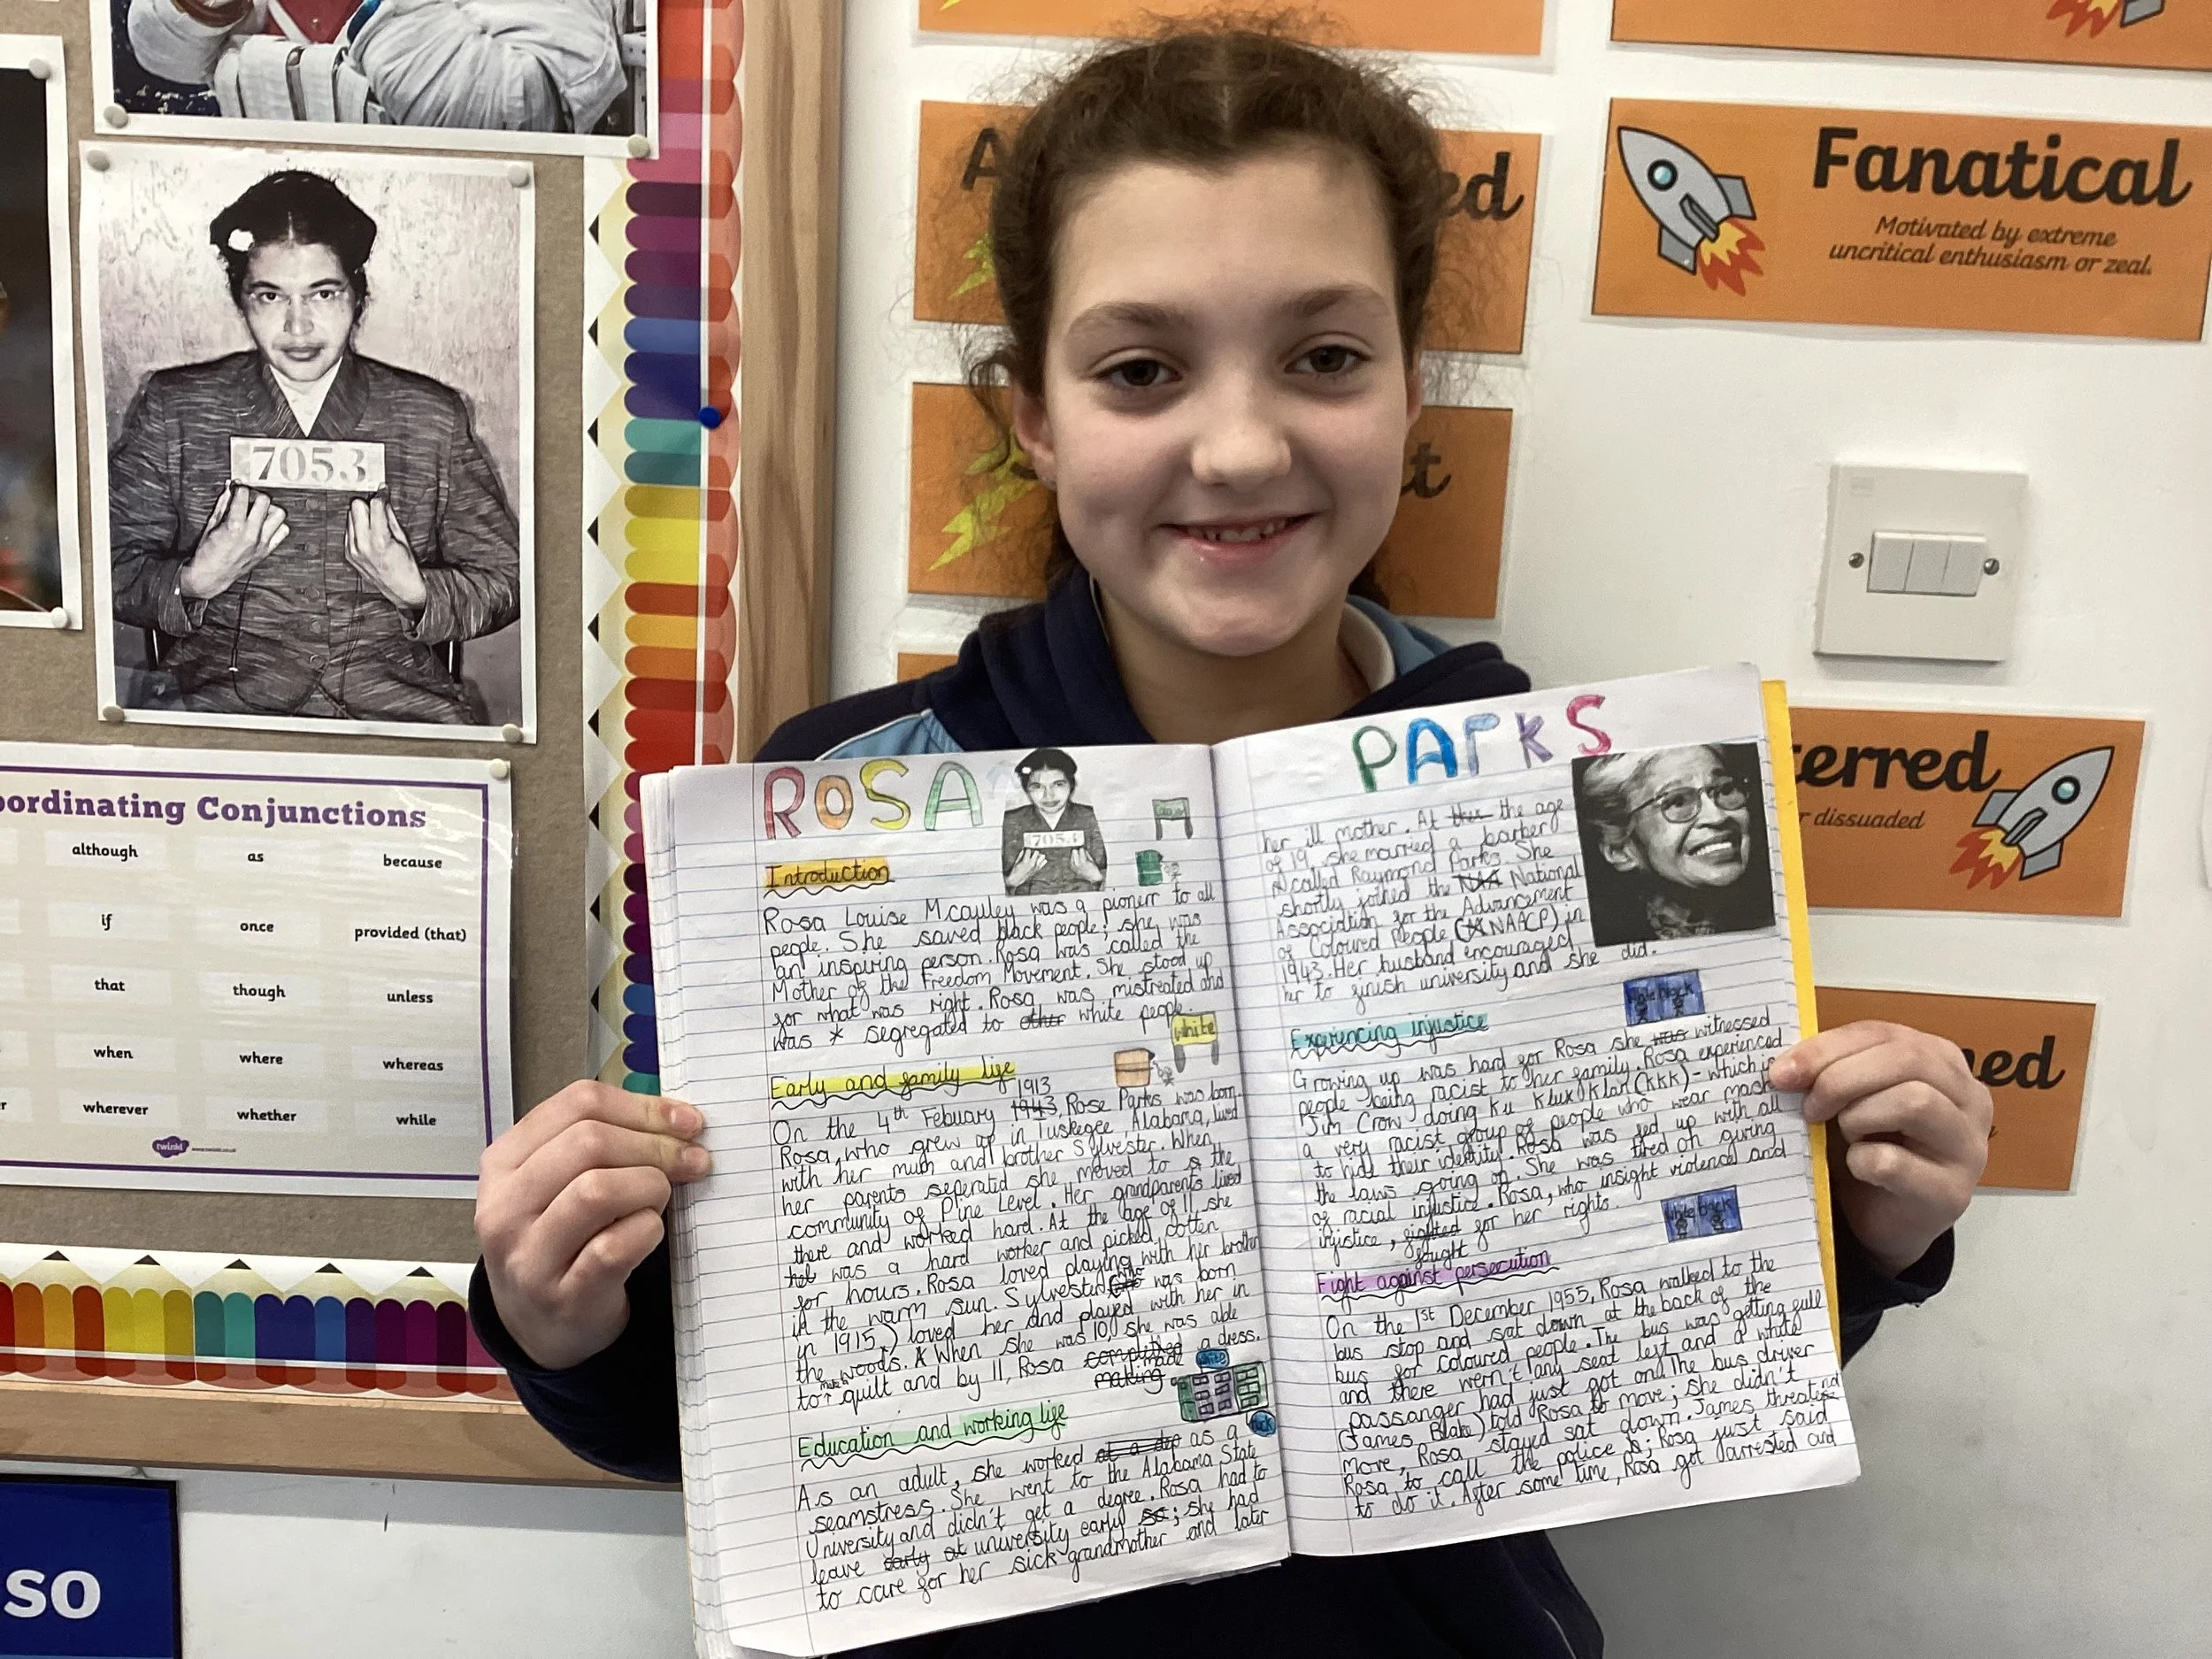 7053
ordinating Conjunctions
although as because
if once provided (that)
that though unless
when where whereas
wherever whether while
twinkl
so
ed
Fanatical
Motivated by extreme
uncritical enthusiasm or zeal.
t
erred
r dissuaded
ned
ROSA
7053
Introduction
Rosa Louise Mcauley was a pionerr to all
people. She saved black people; she was
an inspiring person. Rosa was called the
Mother of the Freedom Movement. She stood up
for what was right. Rosa was mistreated and
was * segregated to other white people.
white
Early and family life
1913
On the 4th Febuary 1943, Rose Parks was born.
Rosa, who grew up in Tuskegee Alabama, lived
with her mum and brother Sylvester. When
her parents seperatd she moved to the
community of Pine Level. Her grandparents lived
there and worked hard. At the age of 11 she
was a hard worker and picked cotten
for hours. Rosa loved playing with her brother
in the warm sun. Sylvester (who was born
in 1915) loved her and played with her in
the woods. When she was 10, she was able
to quilt and by 11, Rosa completed made a dress.
making
white
Education and working life
As an adult, she worked as a
seamstress. She went to the Alabama State
University and didn't get a degree. Rosa had to
leave early at university early so; she had
to care for her sick grandmother and later
PARKS
her ill mother. At the age
of 19, she married a barber
called Raymond Parks. She
shortly joined the NAA National
Association for the Advancement
of Coloured People (NAACP) in
1943. Her husband encouraged
her to finish university and she did.
black
Experiencing injustice
Growing up was hard for Rosa she was witnessed
people being racist to her family. Rosa experienced
Jim Crow doing Ku Klux Klan (KKK) - which is
a very racist group of people who wear mask
to hide their identity. Rosa was fed up with all
the laws going on. She was tired oh giving
of racial injustice. Rosa, who insight violence and
injustice, fighted for her rights.
fought
Fight against persecution
On the 1st December 1955, Rosa walked to the
bus stop and sat down at the back of the
bus for coloured people. The bus was getting full
and there wern't any seat left and a white
passanger had just got on. The bus driver
(James Blake) told Rosa to move; she didn't
move, Rosa stayed sat down. James threatend
Rosa to call the police; Rosa just said
to do it. After some time, Rosa got arrested and